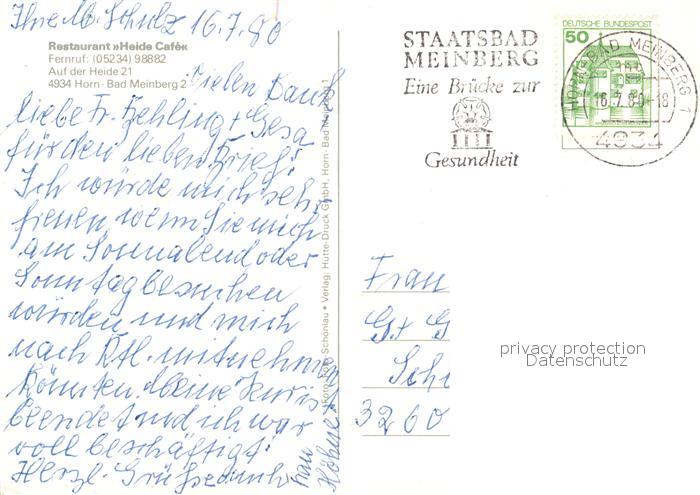 Ihre M. Schulz 16.7.80
Restaurant »Heide Café«
Fernruf: (05234) 98882
Auf der Heide 21
4934 Horn-Bad Meinberg 2
Vielen Dank
liebe Fr. Fehling + Gesa
für den lieben Brief.
Ich würde mich sehr
freuen wenn Sie mich
am Sonnabend oder
Sonntag besuchen
würden und mich
nach Rtl. mitnehmen
könnten. Meine Kur is
beendet und ich war
voll beschäftigt.
Herzl. Grüße
Frau
Foto: Schönlau • Verlag: Hütte-Druck GmbH, Horn-Bad Meinberg 1
STAATSBAD
MEINBERG
Eine Brücke zur
Gesundheit
DEUTSCHE BUNDESPOST
50
HORN-BAD MEINBERG 1
16.7.80-18
4934
Frau
G. + G
Sch
3260
privacy protection
Datenschutz